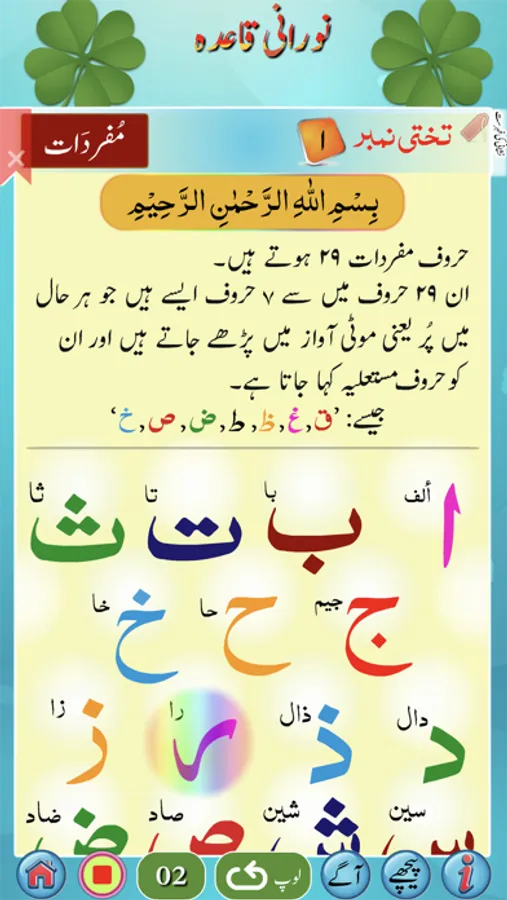 نورانی قاعدہ
تختی نمبر ۱ مُفرَدَات
بِسْمِ اللهِ الرَّحْمٰنِ الرَّحِيْمِ
حروف مفردات ۲۹ ہوتے ہیں۔
ان ۲۹ حروف میں سے ۷ حروف ایسے ہیں جو ہر حال
میں پُر یعنی موٹی آواز میں پڑھے جاتے ہیں اور ان
کو حروف مستعلیہ کہا جاتا ہے۔
جیسے: ’ق, غ, ظ, ط, ض, ص, خ‘
ألف با تا ثا
ا ب ت ث
جیم حا خا
ج ح خ
دال ذال را زا
د ذ ر ز
سین شین صاد ضاد
س ش ص ض
پیچھے آگے لوپ 02